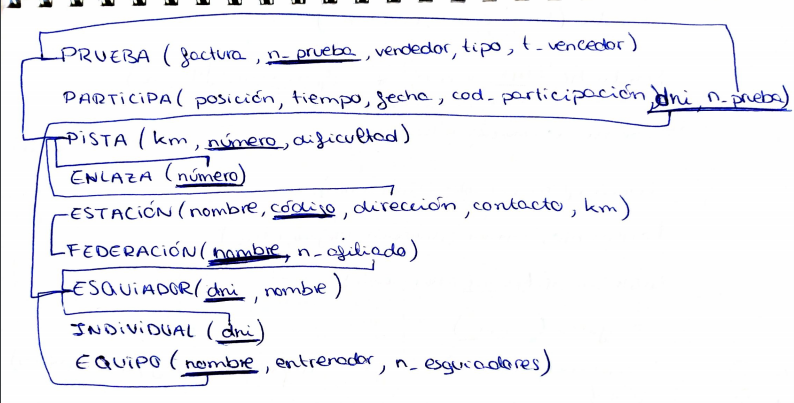 PRUEBA (factura, n_prueba, vendedor, tipo, t_vencedor)
PARTICIPA (posición, tiempo, fecha, cod_participación, dni, n_prueba)
PISTA (km, número, dificultad)
ENLAZA (número)
ESTACIÓN (nombre, código, dirección, contacto, km)
FEDERACIÓN (nombre, n_afiliado)
ESQUIADOR (dni, nombre)
INDIVIDUAL (dni)
EQUIPO (nombre, entrenador, n_esquiadores)